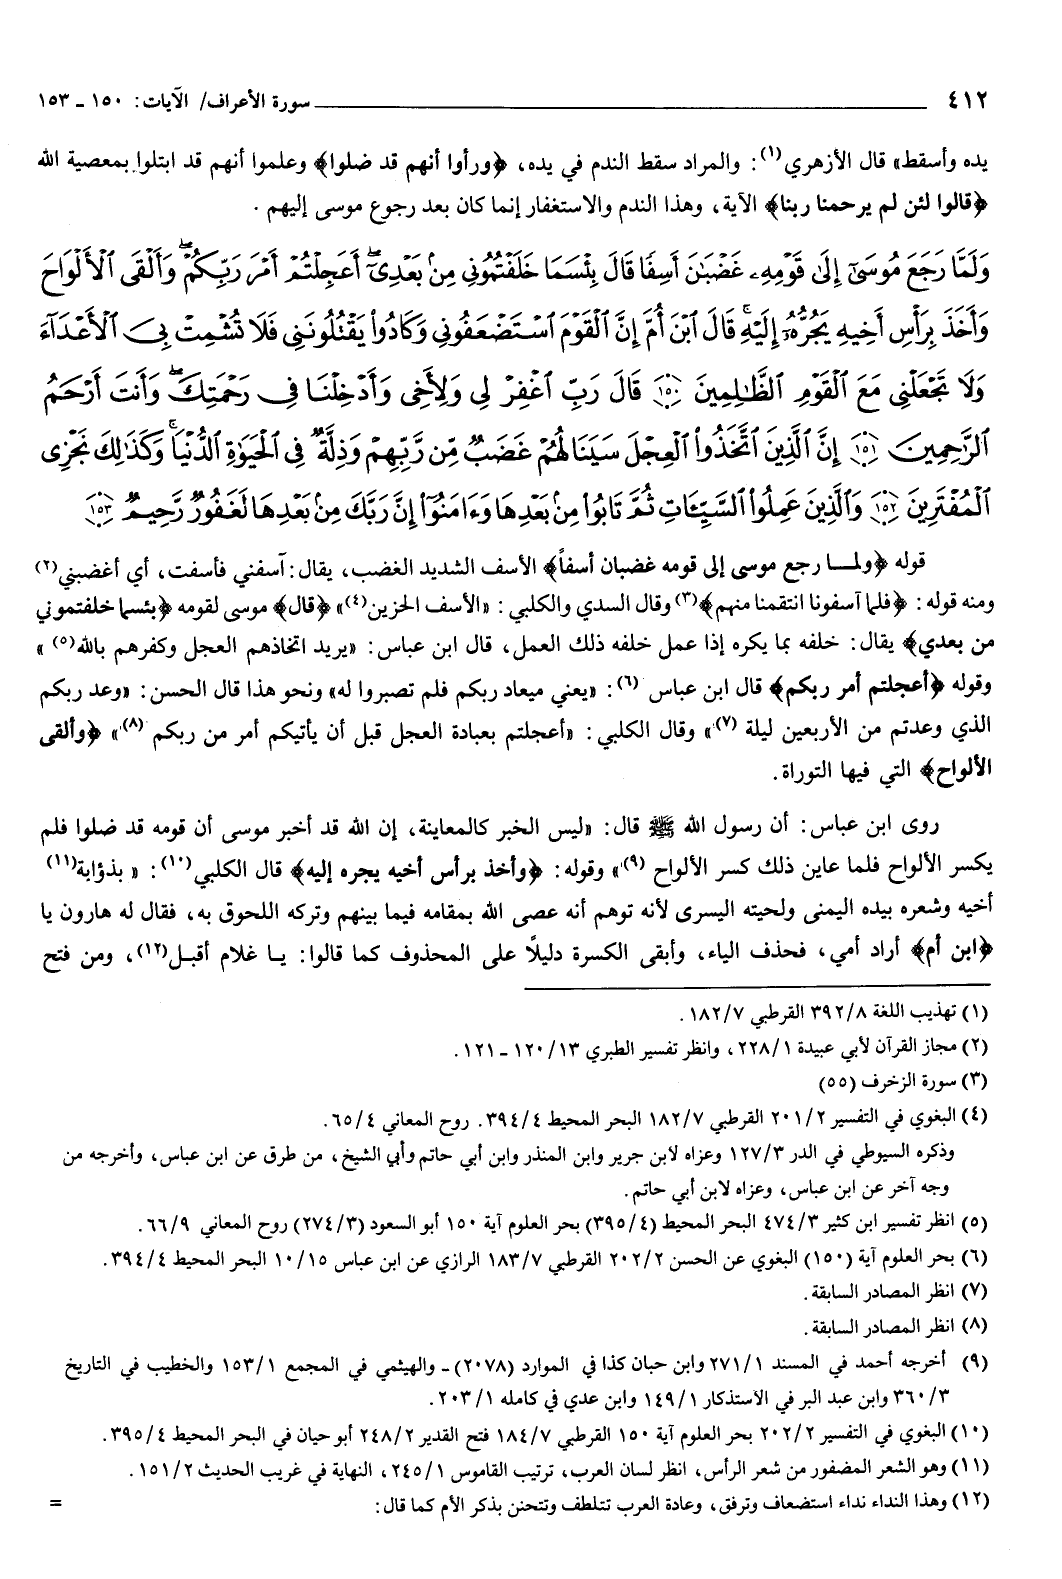 ٤١٢ سورة الأعراف/ الآيات: ١٥٠ ـ ١٥٣
يده وأسقط» قال الأزهري(١): والمراد سقط الندم في يده، ﴿ورأوا أنهم قد ضلوا﴾ وعلموا أنهم قد ابتلوا بمعصية الله
﴿قالوا لئن لم يرحمنا ربنا﴾ الآية، وهذا الندم والاستغفار إنما كان بعد رجوع موسى إليهم .
وَلَمَّا رَجَعَ مُوسَىٰٓ إِلَىٰ قَوْمِهِۦ غَضْبَٰنَ أَسِفًا قَالَ بِئْسَمَا خَلَفْتُمُونِي مِنۢ بَعْدِيٓۖ أَعَجِلْتُمْ أَمْرَ رَبِّكُمْۖ وَأَلْقَى ٱلْأَلْوَاحَ
وَأَخَذَ بِرَأْسِ أَخِيهِ يَجُرُّهُۥٓ إِلَيْهِۚ قَالَ ٱبْنَ أُمَّ إِنَّ ٱلْقَوْمَ ٱسْتَضْعَفُونِي وَكَادُوا۟ يَقْتُلُونَنِي فَلَا تُشْمِتْ بِيَ ٱلْأَعْدَآءَ
وَلَا تَجْعَلْنِي مَعَ ٱلْقَوْمِ ٱلظَّٰلِمِينَ ﴿١٥٠﴾ قَالَ رَبِّ ٱغْفِرْ لِي وَلِأَخِي وَأَدْخِلْنَا فِي رَحْمَتِكَۖ وَأَنتَ أَرْحَمُ
ٱلرَّٰحِمِينَ ﴿١٥١﴾ إِنَّ ٱلَّذِينَ ٱتَّخَذُوا۟ ٱلْعِجْلَ سَيَنَالُهُمْ غَضَبٌ مِّن رَّبِّهِمْ وَذِلَّةٌ فِي ٱلْحَيَوٰةِ ٱلدُّنْيَاۚ وَكَذَٰلِكَ نَجْزِي
ٱلْمُفْتَرِينَ ﴿١٥٢﴾ وَٱلَّذِينَ عَمِلُوا۟ ٱلسَّيِّـَٔاتِ ثُمَّ تَابُوا۟ مِنۢ بَعْدِهَا وَءَامَنُوٓا۟ إِنَّ رَبَّكَ مِنۢ بَعْدِهَا لَغَفُورٌ رَّحِيمٌ ﴿١٥٣﴾
قوله ﴿ولما رجع موسى إلى قومه غضبان أسفاً﴾ الأسف الشديد الغضب، يقال: آسفني فأسفت، أي أغضبني(٢)
ومنه قوله: ﴿فلما آسفونا انتقمنا منهم﴾(٣) وقال السدي والكلبي: «الأسف الحزين(٤)» ﴿قال﴾ موسى لقومه ﴿بئسما خلفتموني
من بعدي﴾ يقال: خلفه بما يكره إذا عمل خلفه ذلك العمل، قال ابن عباس: «يريد اتخاذهم العجل وكفرهم بالله(٥)»
وقوله ﴿أعجلتم أمر ربكم﴾ قال ابن عباس(٦): «يعني ميعاد ربكم فلم تصبروا له» ونحو هذا قال الحسن: «وعد ربكم
الذي وعدتم من الأربعين ليلة(٧)» وقال الكلبي: «أعجلتم بعبادة العجل قبل أن يأتيكم أمر من ربكم(٨)» ﴿وألقى
الألواح﴾ التي فيها التوراة.
روى ابن عباس: أن رسول الله ﷺ قال: «ليس الخبر كالمعاينة، إن الله قد أخبر موسى أن قومه قد ضلوا فلم
يكسر الألواح فلما عاين ذلك كسر الألواح(٩)» وقوله: ﴿وأخذ برأس أخيه يجره إليه﴾ قال الكلبي(١٠): «بذؤابة(١١)
أخيه وشعره بيده اليمنى ولحيته اليسرى لأنه توهم أنه عصى الله بمقامه فيما بينهم وتركه اللحوق به، فقال له هارون يا
﴿ابن أم﴾ أراد أمي، فحذف الياء، وأبقى الكسرة دليلاً على المحذوف كما قالوا: يا غلام أقبل(١٢)، ومن فتح
(١) تهذيب اللغة ٣٩٢/٨ القرطبي ١٨٢/٧ .
(٢) مجاز القرآن لأبي عبيدة ٢٢٨/١، وانظر تفسير الطبري ١٢٠/١٣ ـ ١٢١.
(٣) سورة الزخرف (٥٥)
(٤) البغوي في التفسير ٢٠١/٢ القرطبي ١٨٢/٧ البحر المحيط ٣٩٤/٤. روح المعاني ٦٥/٤.
وذكره السيوطي في الدر ١٢٧/٣ وعزاه لابن جرير وابن المنذر وابن أبي حاتم وأبي الشيخ، من طرق عن ابن عباس، وأخرجه من
وجه آخر عن ابن عباس، وعزاه لابن أبي حاتم.
(٥) انظر تفسير ابن كثير ٤٧٤/٣ البحر المحيط (٣٩٥/٤) بحر العلوم آية ١٥٠ أبو السعود (٢٧٤/٣) روح المعاني ٦٦/٩.
(٦) بحر العلوم آية (١٥٠) البغوي عن الحسن ٢٠٢/٢ القرطبي ١٨٣/٧ الرازي عن ابن عباس ١٠/١٥ البحر المحيط ٣٩٤/٤.
(٧) انظر المصادر السابقة.
(٨) انظر المصادر السابقة.
(٩) أخرجه أحمد في المسند ٢٧١/١ وابن حبان كذا في الموارد (٢٠٧٨) ـ والهيثمي في المجمع ١٥٣/١ والخطيب في التاريخ
٣٦٠/٣ وابن عبد البر في الآستذكار ١٤٩/١ وابن عدي في كامله ٢٠٣/١.
(١٠) البغوي في التفسير ٢٠٢/٢ بحر العلوم آية ١٥٠ القرطبي ١٨٤/٧ فتح القدير ٢٤٨/٢ أبو حيان في البحر المحيط ٣٩٥/٤.
(١١) وهو الشعر المضفور من شعر الرأس، انظر لسان العرب، ترتيب القاموس ٢٤٥/١، النهاية في غريب الحديث ١٥١/٢.
(١٢) وهذا النداء نداء استضعاف وترفق، وعادة العرب تتلطف وتتحنن بذكر الأم كما قال: =